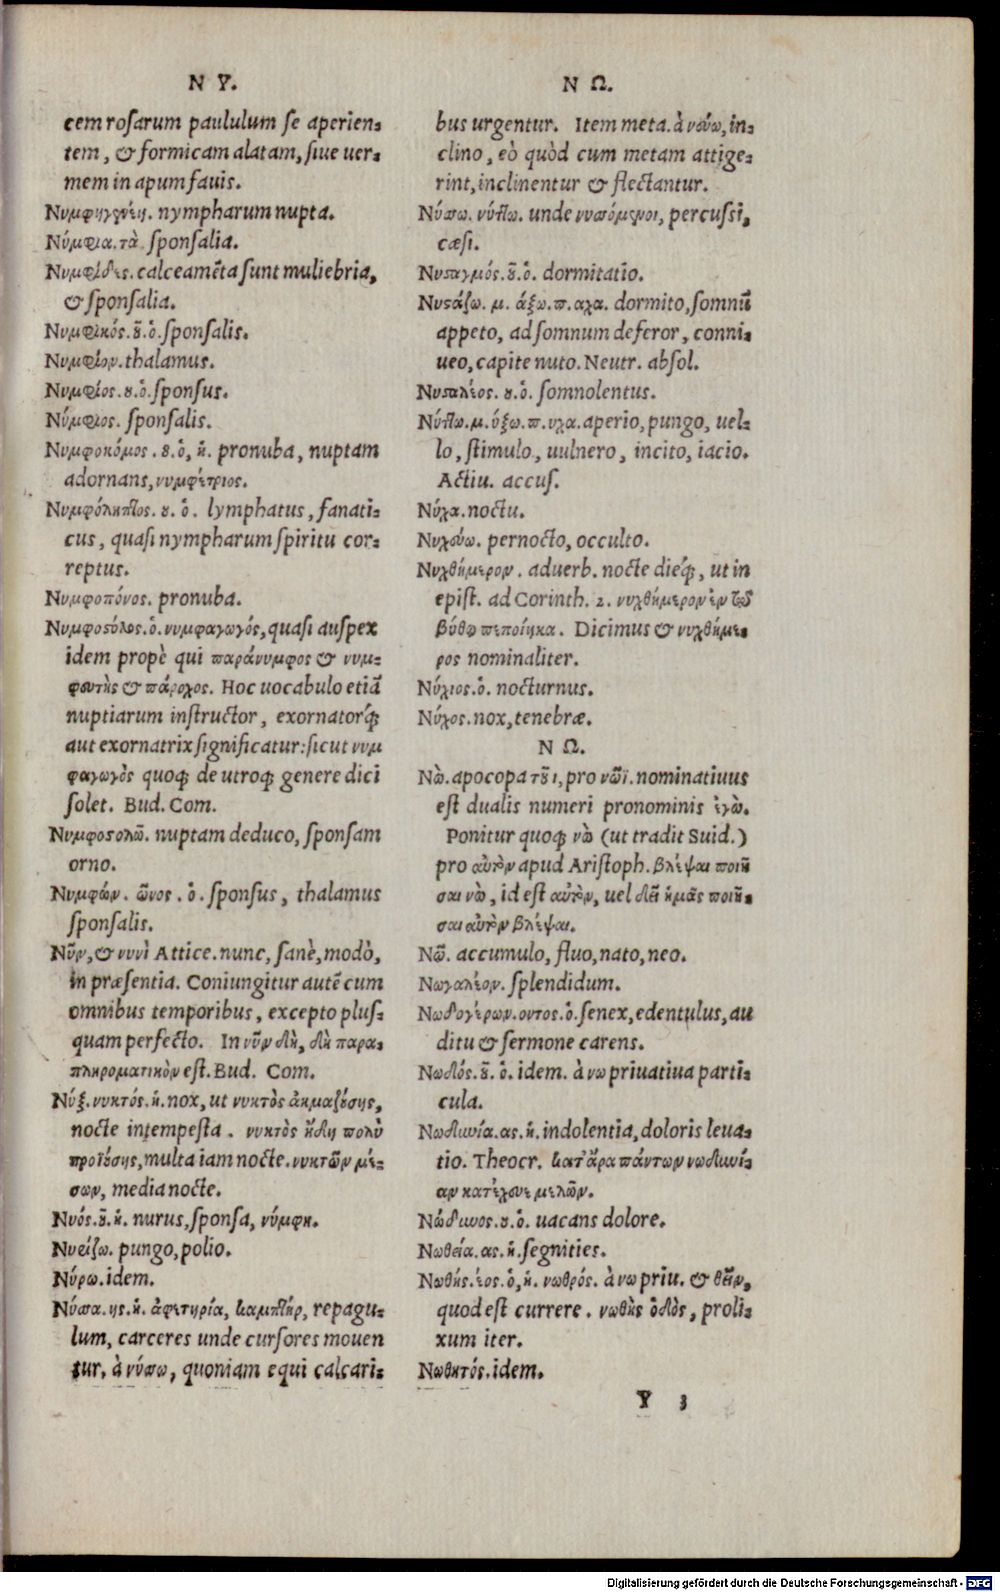 Ν Υ.
cem rosarum paululum se aperien-
tem, & formicam alatam, siue uer-
mem in apum fauis.
Νυμφηγενέη. nympharum nupta.
Νύμφια. τὰ sponsalia.
Νυμφίδες. calceamẽta sunt muliebria,
& sponsalia.
Νυμφικός. ȣ̃. ὁ. sponsalis.
Νυμφίον. thalamus.
Νυμφίος. ȣ. ὁ. sponsus.
Νύμφιος. sponsalis.
Νυμφοκόμος. ȣ. ὁ, ἡ. pronuba, nuptam
adornans, νυμφέτριος.
Νυμφόληπτος. ȣ. ὁ. lymphatus, fanati-
cus, quasi nympharum spiritu cor-
reptus.
Νυμφοπόνος. pronuba.
Νυμφοϛόλος. ὁ. νυμφαγωγός, quasi auspex
idem propè qui παράνυμφος & νυμ-
φευτὴς & πάροχος. Hoc uocabulo etiã
nuptiarum instructor, exornatorq́;
aut exornatrix significatur: sicut νυμ
φαγωγὸς quoq; de utroq; genere dici
solet. Bud. Com.
Νυμφοϛολῶ. nuptam deduco, sponsam
orno.
Νυμφών. ῶνος. ὁ. sponsus, thalamus
sponsalis.
Νῦν, & νυνὶ Attice. nunc, sanè, modò,
in præsentia. Coniungitur autẽ cum
omnibus temporibus, excepto plus-
quam perfecto. In νῦν δὴ, δὴ παρα-
πληροματικὸν est. Bud. Com.
Νύξ. νυκτός. ἡ. nox, ut νυκτὸς ἀκμαζȣ́σης,
nocte intempesta. νυκτὸς ἤδη πολὺ
προϊȣ́σης, multa iam nocte. νυκτῶν μέ-
σων, media nocte.
Νυός. ȣ̃. ἡ. nurus, sponsa, νύμφη.
Νυείζω. pungo, polio.
Νύρω. idem.
Νύσσα. ης. ἡ. ἀφετηρία, καμπτὴρ, repagu-
lum, carceres unde cursores mouen
tur, à νύσσω, quoniam equi calcari-
Ν Ω.
bus urgentur. Item meta. à νεύω, in-
clino, eò quòd cum metam attige-
rint, inclinentur & flectantur.
Νύσσω. νύττω. unde νυσσόμενοι, percussi,
cæsi.
Νυϛαγμός. ȣ̃. ὁ. dormitatio.
Νυϛάζω. μ. άξω. π. αχα. dormito, somnũ
appeto, ad somnum deferor, conni-
ueo, capite nuto. Neutr. absol.
Νυϛαλέος. ȣ. ὁ. somnolentus.
Νύττω. μ. ύξω. π. υχα. aperio, pungo, uel-
lo, stimulo, uulnero, incito, iacio.
Actiu. accus.
Νύχα. noctu.
Νυχεύω. pernocto, occulto.
Νυχθήμερον. aduerb. nocte dieq́;, ut in
epist. ad Corinth. 2. νυχθήμερον ἐν τῷ
βύθῳ πεποίηκα. Dicimus & νυχθήμε-
ρος nominaliter.
Νύχιος. ὁ. nocturnus.
Νύχος. nox, tenebræ.
Ν Ω.
Νὼ. apocopa τȣ̃ ι, pro νῶϊ. nominatiuus
est dualis numeri pronominis ἐγὼ.
Ponitur quoq; νὼ (ut tradit Suid.)
pro αὐτὸν apud Aristoph. βλέψαι ποιῆ
σαι νὼ, id est αὐτὸν, uel δεῖ ἡμᾶς ποιῆ-
σαι αὐτὸν βλέψαι.
Νῶ. accumulo, fluo, nato, neo.
Νωγαλέον. splendidum.
Νωδογέρων. οντος. ὁ. senex, edentulus, au
ditu & sermone carens.
Νωδός. ȣ̃. ὁ. idem. à νω priuatiua parti-
cula.
Νωδυνία. ας. ἡ. indolentia, doloris leua-
tio. Theocr. κατ' ἄρα πάντων νωδυνί-
αν κατέχευε μελῶν.
Νώδυνος. ȣ. ὁ. uacans dolore.
Νωθεία. ας. ἡ. segnities.
Νωθής. έος. ὁ, ἡ. νωθρός. à νω priu. & θεῖν,
quod est currere. νωθὴς ὁδὸς, proli-
xum iter.
Νωθητός. idem.
Y 3
Digitalisierung gefördert durch die Deutsche Forschungsgemeinschaft - DFG